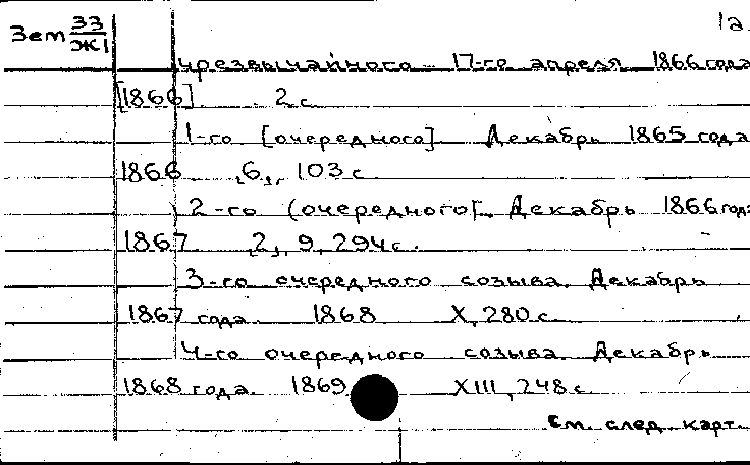 Зем 33/Ж1
1а
чрезвычайного 17-го апреля 1866 года
[1866]. 2 с.
1-го [очередного] Декабрь 1865 года
1866 ,6,, 103 с
2-го (очередного]. Декабрь 1866 года
1867 ,2,, 9, 294 с.
3-го очередного созыва. Декабрь
1867 года. 1868 X, 280 с.
4-го очередного созыва. Декабрь
1868 года. 1869 XIII, 248 с
См. след. карт.